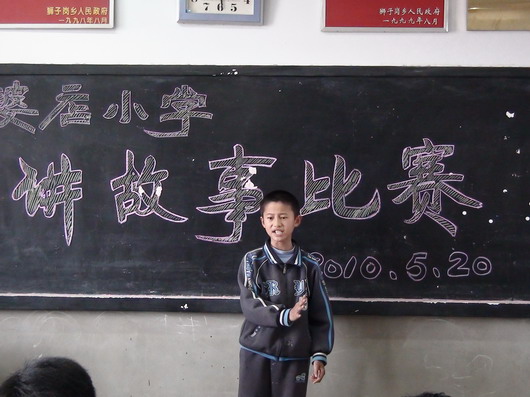 狮子岗乡人民政府
一九九八年八月
狮子岗乡人民政府
一九九九年八月
7 6 5
娄店小学
讲故事比赛
2010.5.20